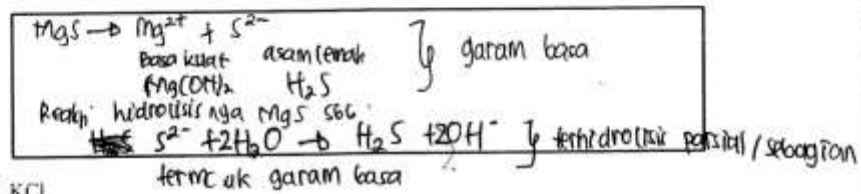 MgS → Mg²⁺ + S²⁻
Basa kuat asam lemah } garam basa
Mg(OH)₂ H₂S
Reaksi hidrolisis nya MgS sbb :
S²⁻ + 2H₂O → H₂S + 2OH⁻ } terhidrolisis parsial / sebagian
termasuk garam basa
KCl